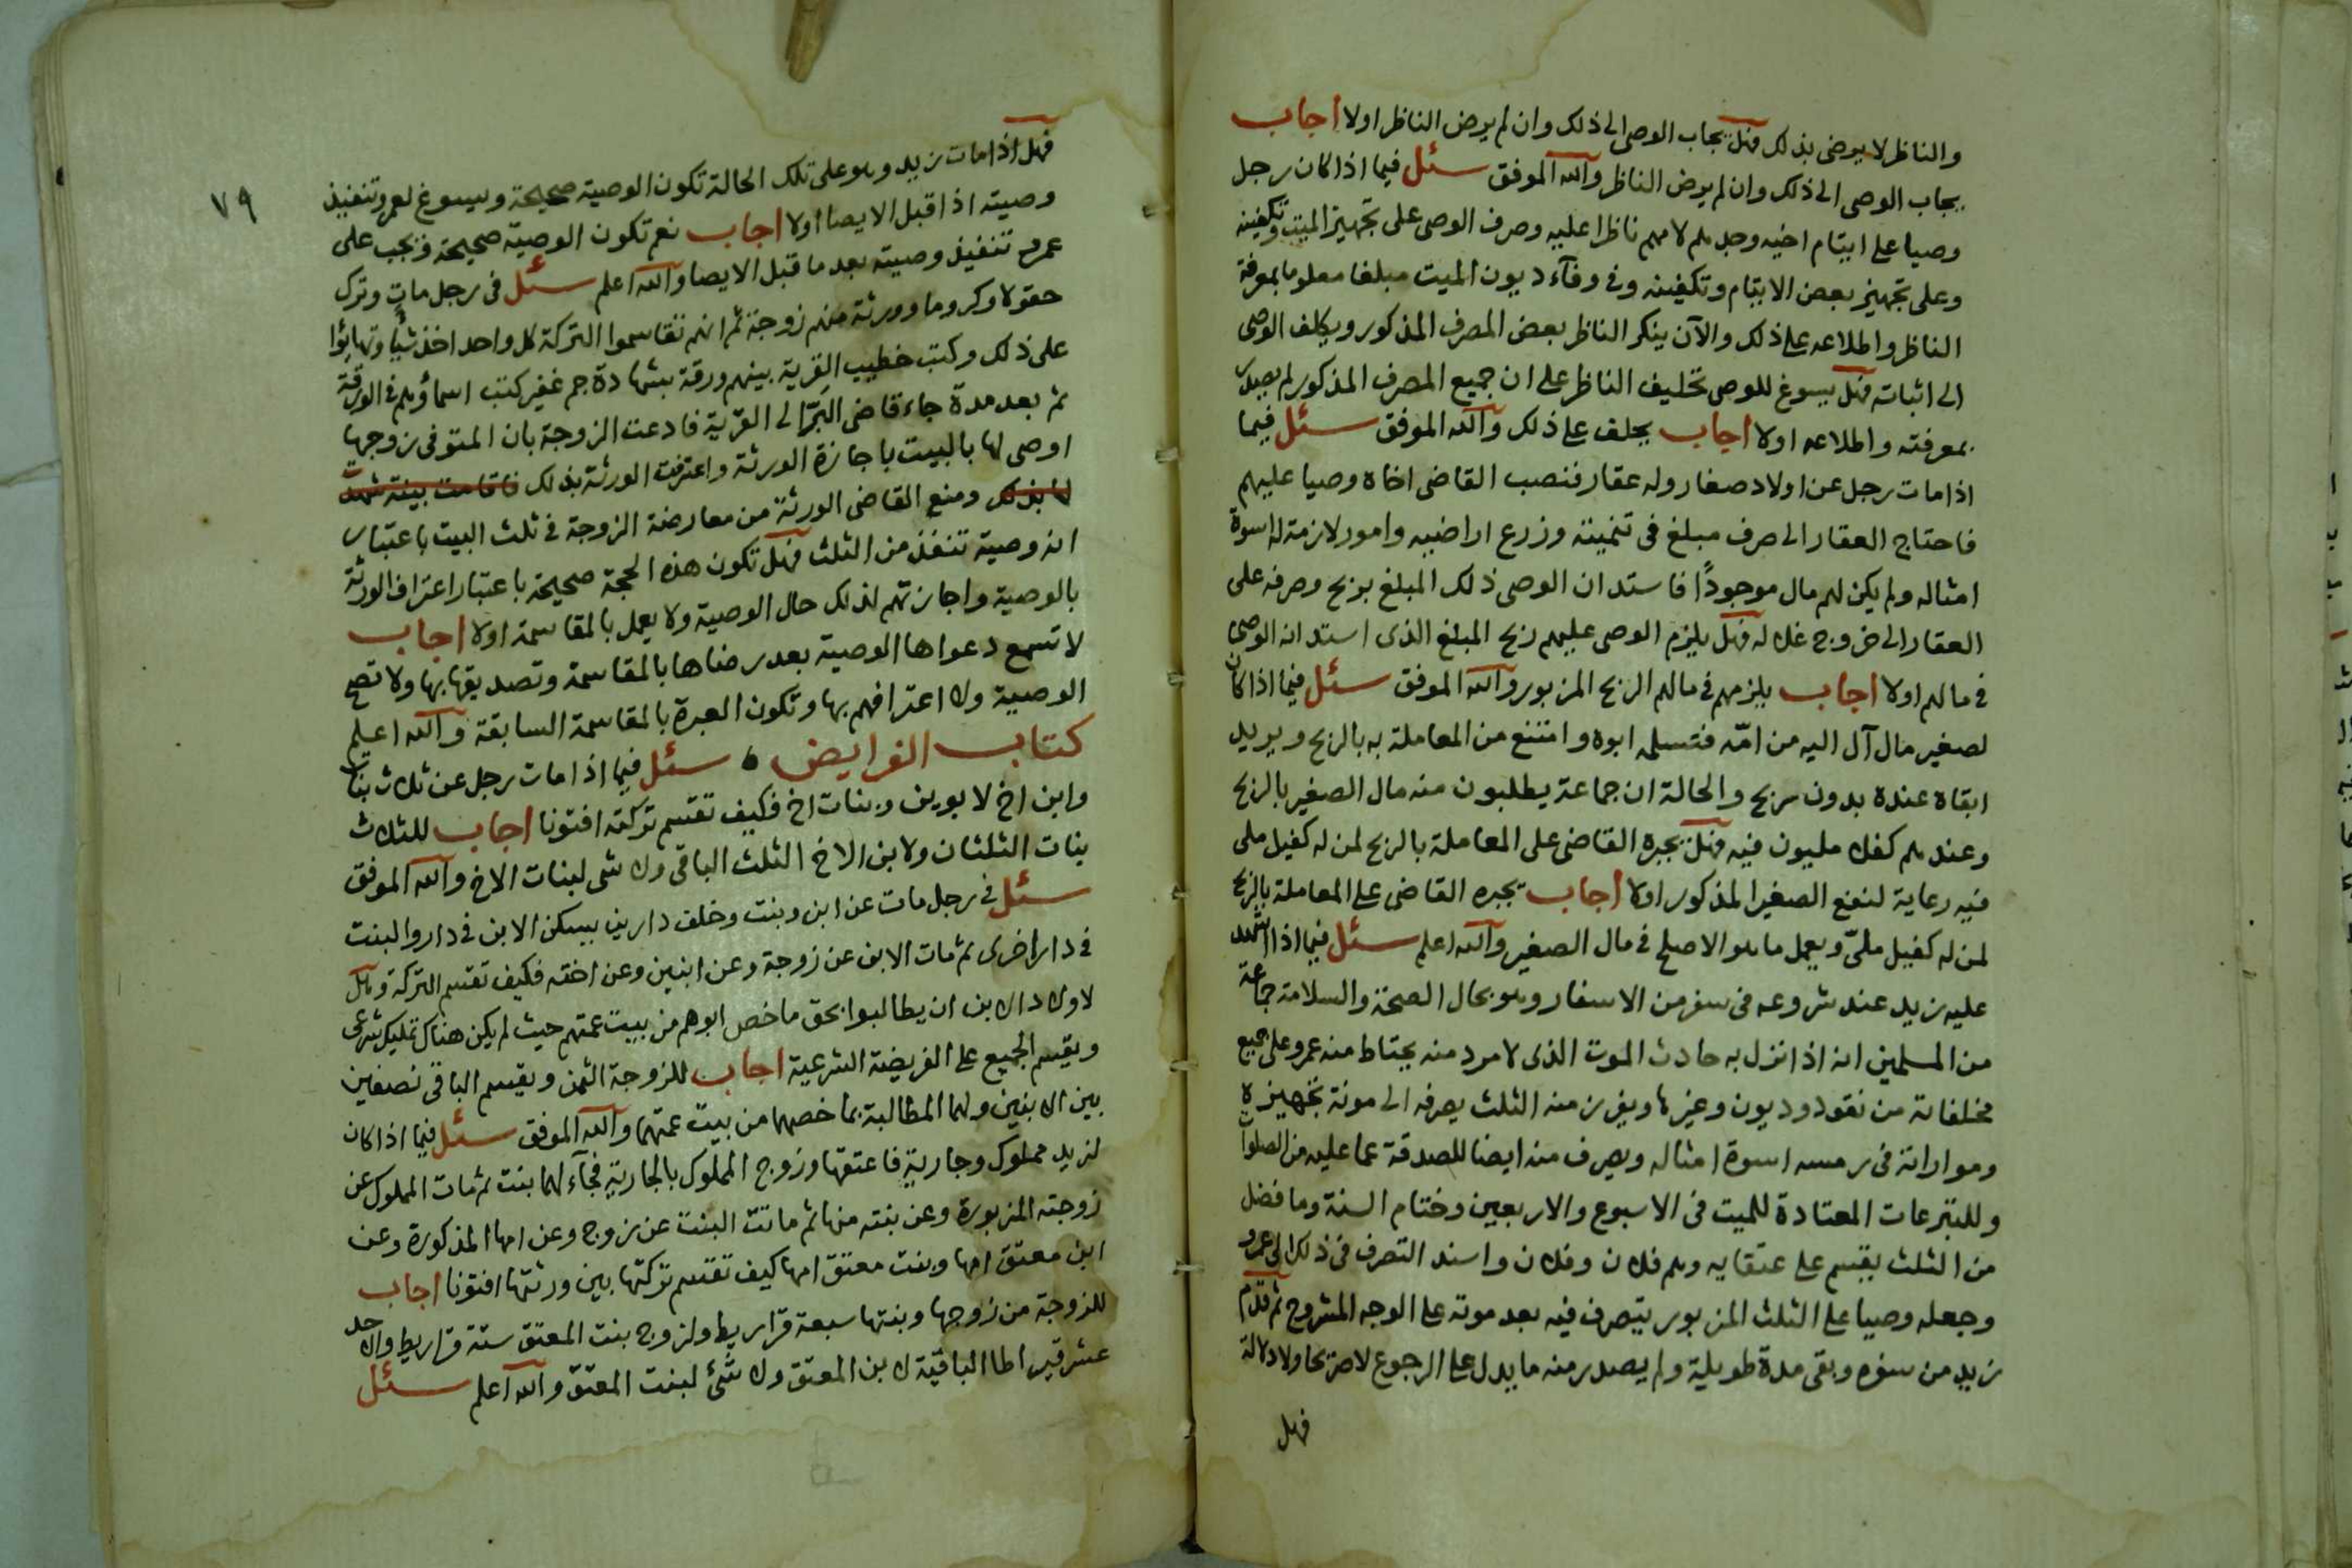 والناظر لا يرضى بذلك فهل يجاب الوصي الى ذلك وان لم يرض الناظر اولا اجاب
يجاب الوصي الى ذلك وان لم يرض الناظر والله الموفق سئل فيما اذا كان رجل
وصيا على ايتام اخيه وجدهم لامهم ناظرا عليه وصرف الوصي على تجهيز الميت وتكفينه
وعلى تجهيز بعض الايتام وتكفينه وفى وفآء ديون الميت مبلغا معلوما بمعرفة
الناظر واطلاعه على ذلك والآن ينكر الناظر بعض المصرف المذكور ويكلف الوصي
الى اثباته فهل يسوغ للوصي تحليف الناظر على ان جميع المصرف المذكور لم يصدر
بمعرفته واطلاعه اولا اجاب يحلف على ذلك والله الموفق سئل فيما
اذا مات رجل عن اولاد صغار وله عقار فنصب القاضى اخاه وصيا عليهم
فاحتاج العقار الى صرف مبلغ فى تنميته وزرع اراضيه وامور لازمة له اسوة
امثاله ولم يكن لهم مال موجودًا فاستدان الوصي ذلك المبلغ بربح وصرفه على
العقار الى خروج غلاله فهل يلزم الوصي عليهم ربح المبلغ الذى استدانه الوصي
فى مالهم اولا اجاب يلزمهم فى مالهم الربح المزبور والله الموفق سئل فيما اذا كان
لصغير مال آل اليه من امّه فتسلمه ابوه وامتنع من المعاملة به بالربح ويريد
ابقاه عنده بدون ربح والحالة ان جماعة يطلبون منه مال الصغير بالربح
وعندهم كفلا مليون فيه فهل يجبره القاضى على المعاملة بالربح لمن له كفيل ملى
فيه رعاية لنفع الصغير المذكور اولا اجاب يجبره القاضى على المعاملة بالربح
لمن له كفيل ملىّ ويعمل ما هو الاصلح فى مال الصغير والله اعلم سئل فيما اذا اشهد
عليه زيد عند شروعه فى سفر من الاسفار وهو بحال الصحة والسلامة جماعة
من المسلمين انه اذا نزل به حادث الموت الذى لا مرد منه يحتاط منه عمرو على جميع
مخلفاته من نقود وديون وغيرها ويفرز منه الثلث يصرفه الى مونة تجهيزه
وموارانة فى رمسه اسوة امثاله ويصرف منه ايضا للصدقة عما عليه من الصلوات
وللتبرعات المعتادة للميت فى الاسبوع والاربعين وختام السنة وما فضل
من الثلث يقسم على عتقايه وهم فلان وفلان واسند التصرف فى ذلك الى عمرو
وجعله وصيا على الثلث المزبور يتصرف فيه بعد موته على الوجه المشروح ثم قدم
زيد من سفره وبقى مدة طويلة ولم يصدر منه ما يدل على الرجوع لا صريحا ولا دلالة
فهل
٧٩
فهل اذا مات زيد وهو على تلك الحالة تكون الوصية صحيحة ويسوغ لعمرو تنفيذ
وصيته اذا قبل الايصا اولا اجاب نعم تكون الوصية صحيحة فيجب على
عمرو تنفيذ وصيته بعد ما قبل الايصا والله اعلم سئل فى رجل مات وترك
حقولا وكروما وورثة منهم زوجة ثم انهم تقاسموا التركة كل واحد اخذ شيأ وتهايئوا
على ذلك وكتب خطيب القرية بينهم ورقة بشهادة جم غفير كتب اسماؤهم فى الورقة
ثم بعد مدة جاء قاضى البرّ الى القرية فادعت الزوجة بان المتوفى زوجها
اوصى لها بالبيت باجازة الورثة واعترفت الورثة بذلك فاقامت بينة شهدت
لها بذلك ومنع القاضى الورثة من معارضة الزوجة فى ثلث البيت باعتبار
انه وصية تنفذ من الثلث فهل تكون هذه الحجة صحيحة باعتبار اعتراف الورثة
بالوصية واجازتهم لذلك حال الوصية ولا يعمل بالمقاسمة اولا اجاب
لا تسمع دعواها الوصية بعد رضاها بالمقاسمة وتصديقها بها ولا تصح
الوصية ولا اعترافهم بها وتكون العبرة بالمقاسمة السابقة والله اعلم
كتاب الفرايض ه سئل فيما اذا مات رجل عن ثلاث بنات
وابن اخ لابوين وبنات اخ فكيف تقسم تركته افتونا اجاب للثلاث
بنات الثلثان ولابن الاخ الثلث الباقى ولا شى لبنات الاخ والله الموفق
سئل فى رجل مات عن ابن وبنت وخلف دارين يسكن الابن فى دار والبنت
فى دار اخرى ثم مات الابن عن زوجة وعن ابنين وعن اخته فكيف تقسم التركة وهل
لاولاد الابن ان يطالبوا بحق ما خص ابوهم من بيت عمتهم حيث لم يكن هناك تمليك شرعى
ويقسم الجميع على الفريضة الشرعية اجاب للزوجة الثمن ويقسم الباقى نصفين
بين الابنين ولهما المطالبة بما خصهما من بيت عمتهما والله الموفق سئل فيما اذا كان
لزيد مملوك وجارية فاعتقها وزوج المملوك بالجارية فجآء لهما بنت ثم مات المملوك عن
زوجته المزبورة وعن بنته منها ثم ماتت البنت عن زوج وعن امها المذكورة وعن
ابن معتق امها وبنت معتق امها كيف تقسم تركتها بين ورثتها افتونا اجاب
للزوجة من زوجها وبنتها سبعة قراريط ولزوج بنت المعتق ستة قراريط والاحد
عشر قيراطا الباقية لابن المعتق ولا شئ لبنت المعتق والله اعلم سئل